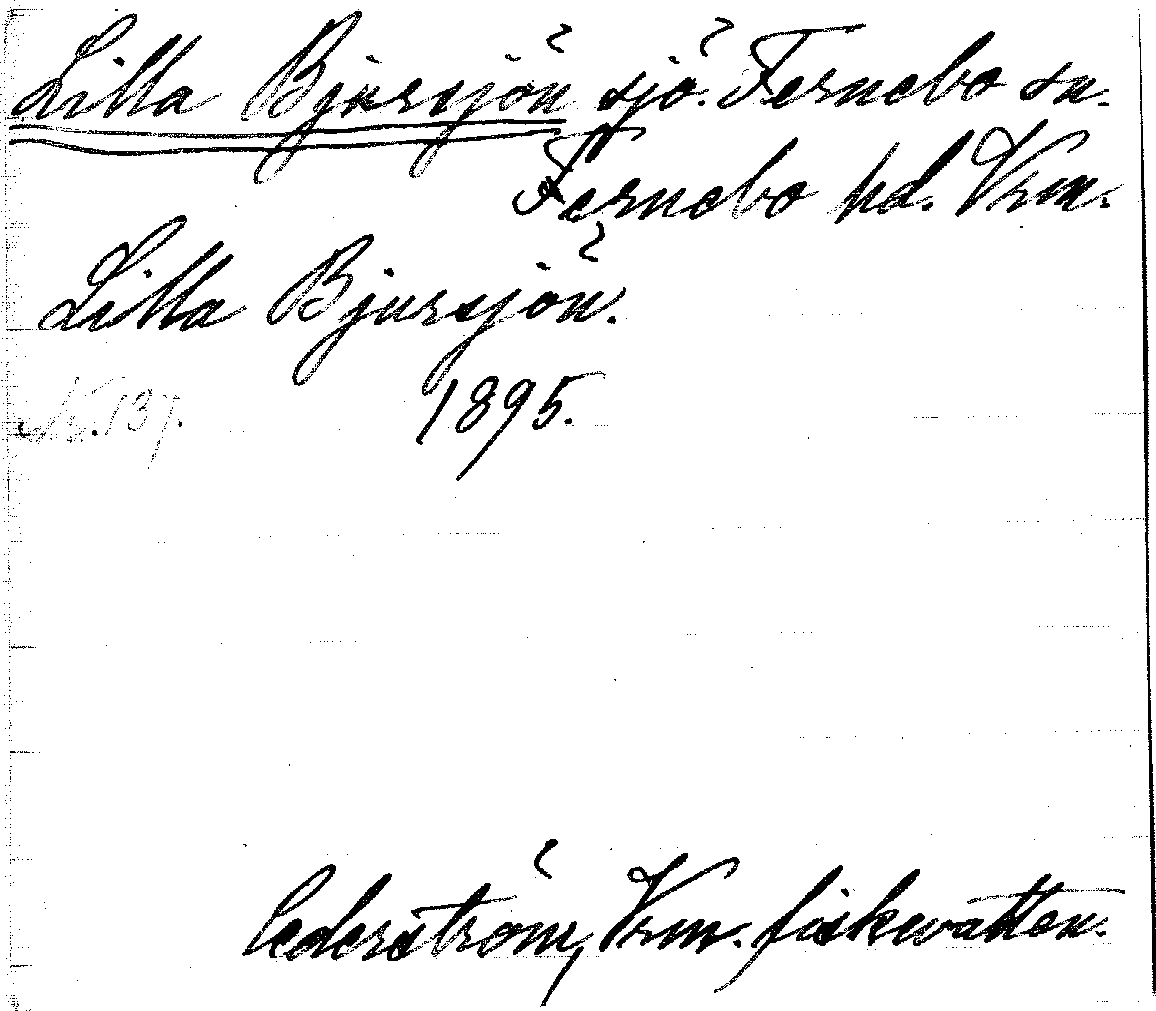 Lilla Bjursjön sjö. Fernebo sn.
Fernebo hd. Vrm.
Lilla Bjursjön.
1895.
137.
Cederström, Vrm. fiskevatten.